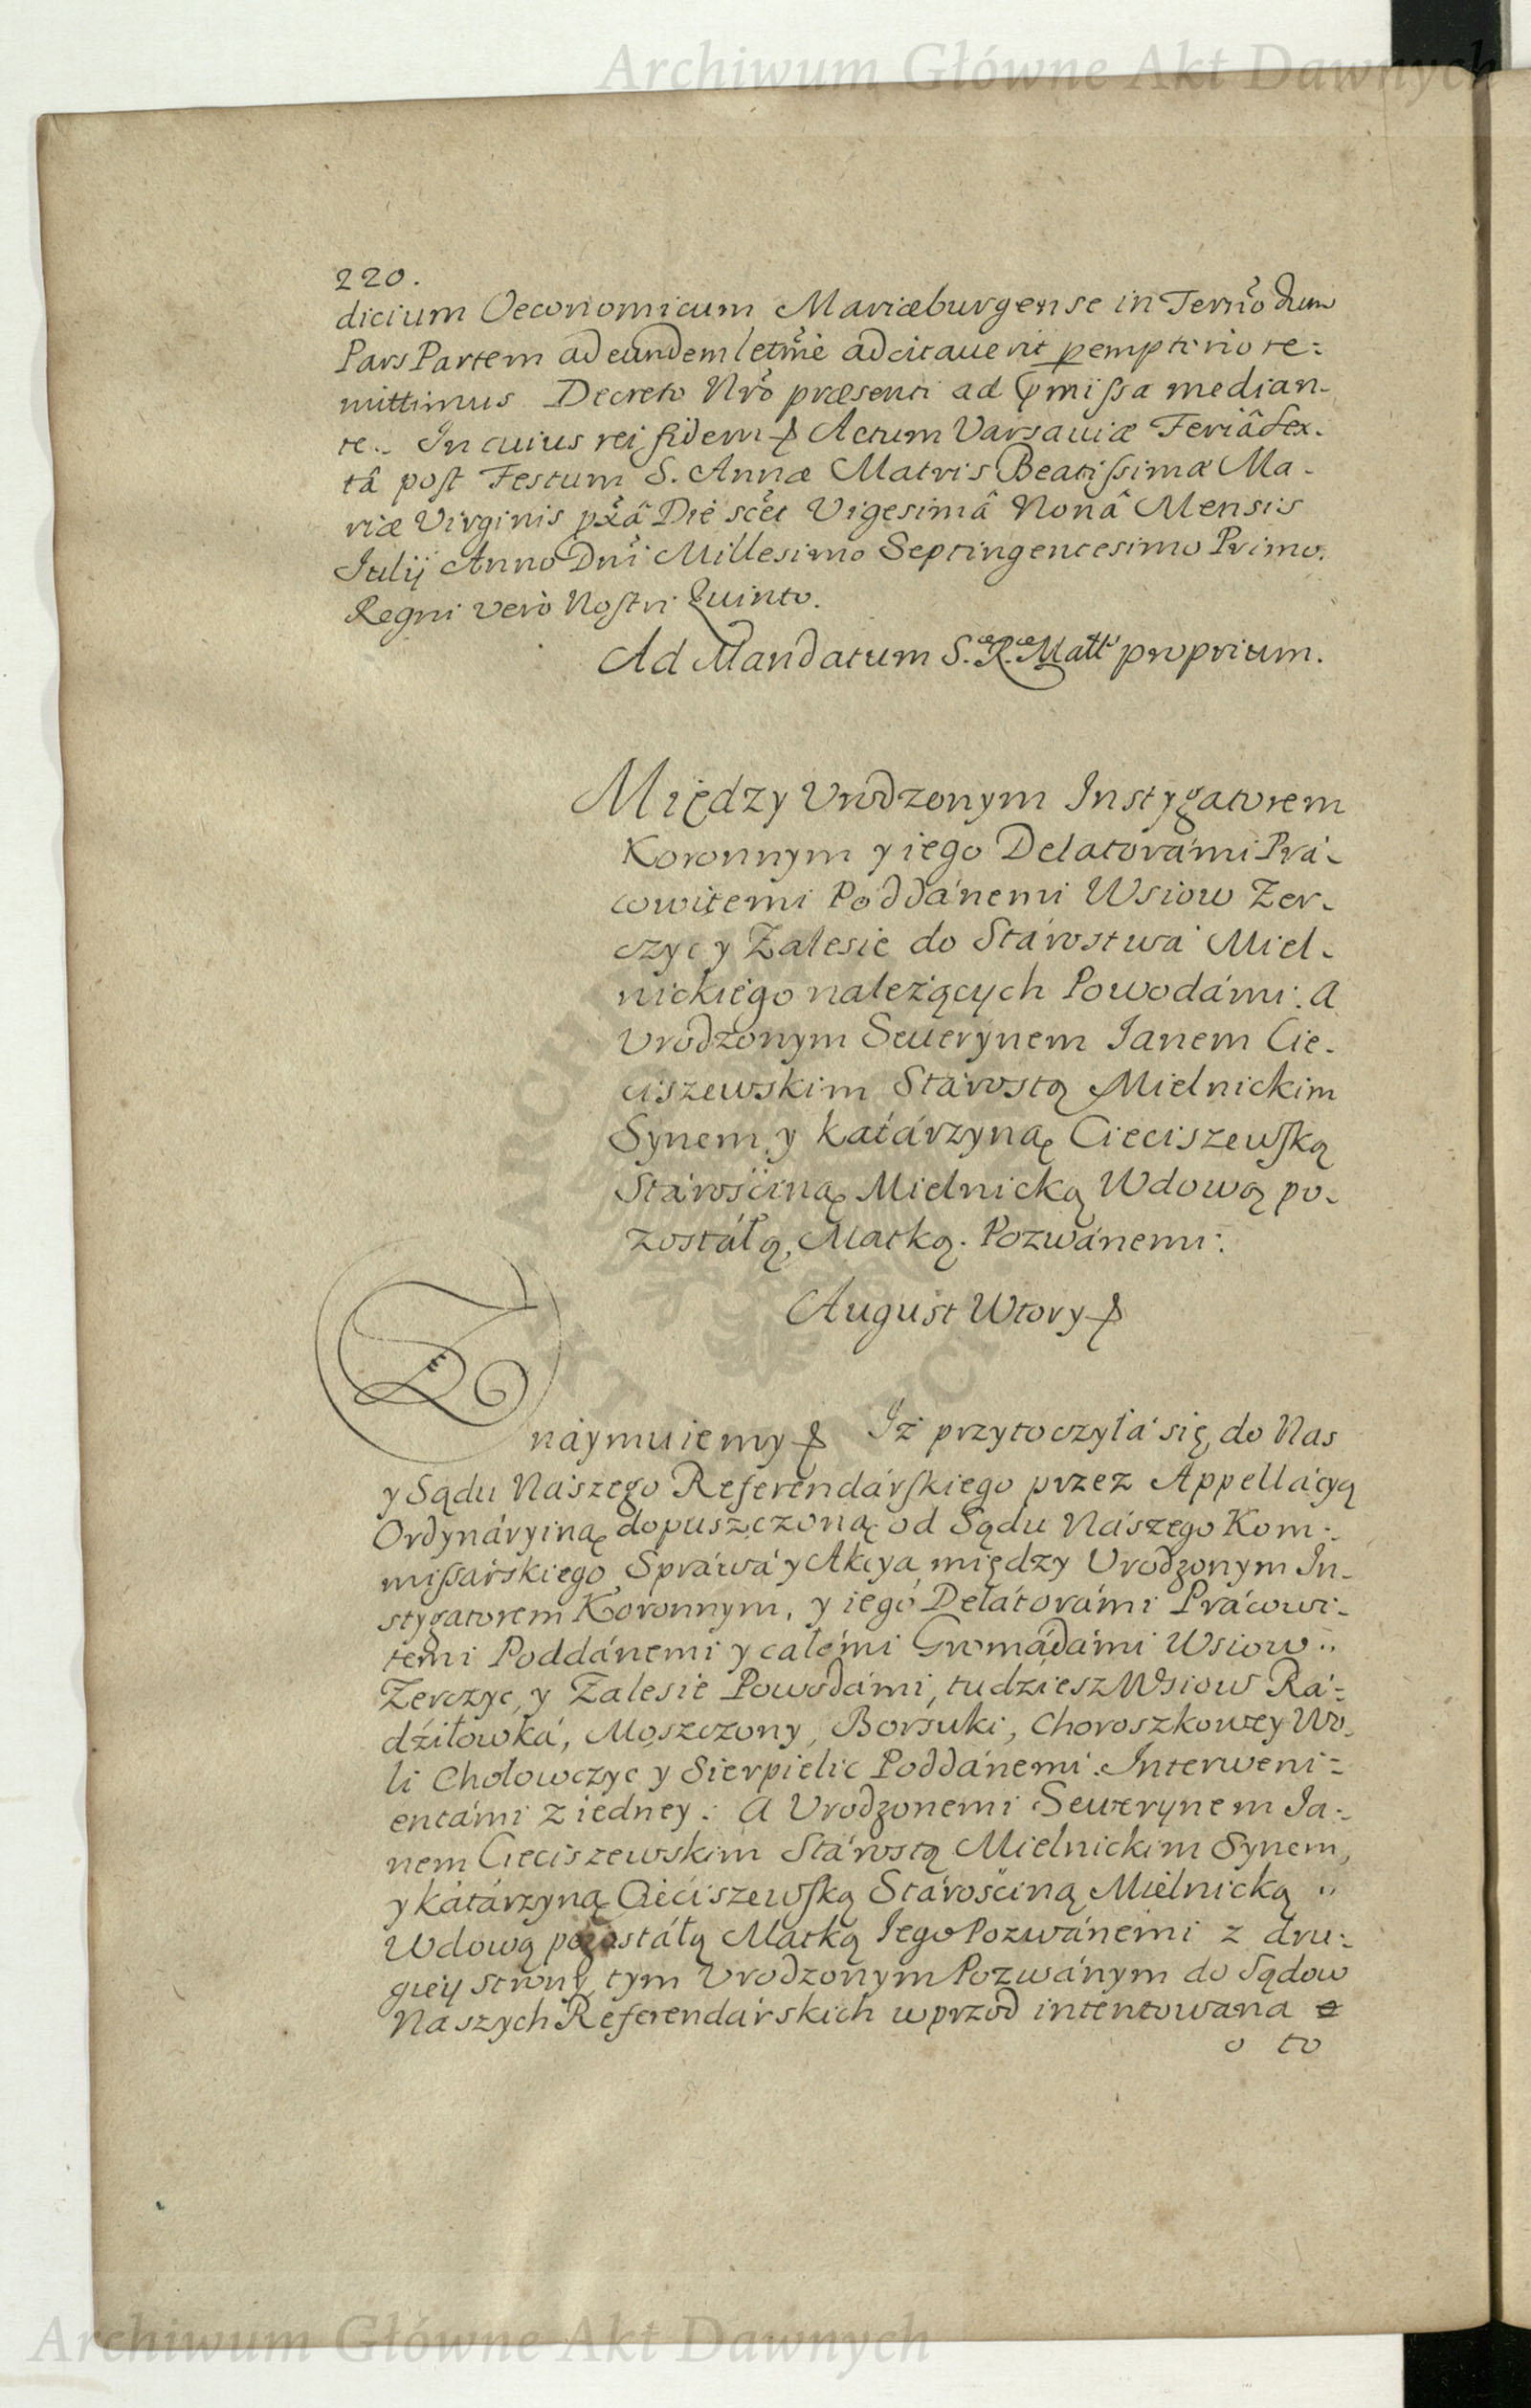 Archiwum Główne Akt Dawnych
220.
dicium Oeconomicum Mariæburgense in Termo dum
Pars Partem ad eundem letme adcitauerit pemptrio re:
mittimus Decreto Nro præsenti ad pmissa median-
te. In cuius rei fidem Actum Varsauiæ Feriâ Sex-
tâ post Festum S. Annæ Matris Beatissimæ Ma-
riæ Virginis pxâ Die scet Vigesimâ Nonâ Mensis
Iulij Anno Dni Millesimo Septingentesimo Primo.
Regni verò Nostri Quinto.
Ad Mandatum S. R. Matt proprium.
Między Urodzonym Instygatorem
Koronnym y iego Delatorámi Prá-
cowitemi Poddánemi Wsiow Zer-
czyc y Zalesie do Stárostwá Miel-
nickiego należących Powodámi. A
Urodzonym Sewerynem Ianem Cie-
ciszewskim Stárostą Mielnickim
Synem, y Katárzyną Cieciszewską
Stárościną Mielnicką Wdową po-
zostáłą, Matką. Pozwánemi:
August Wtory
Znáymuiemy Iż przytoczyłá się do Nas
y Sądu Nászego Referendárskiego przez Appellácyą
Ordynáryiną dopuszczoną od Sądu Nászego Kom:
missárskiego Spráwá y Akcya między Urodzonym In-
stygatorem Koronnym, y iego Delátorámi Prácowi-
temi Poddánemi y całemi Gromádámi Wsiow
Zerczyc, y Zalesie Powodámi, tudziesz Wsiow Rá:
dźiłowká, Moszczony, Borsuki, Choroszkowey Wo-
li Chołowczyc y Sierpielic Poddánemi Interweni=
entámi z iedney: A Urodzonemi Sewerynem Ia-
nem Cieciszewskim Stárostą Mielnickim Synem,
y Katárzyną Cieciszewską Stárościną Mielnicką
Wdową pozostáłą Matką Iego Pozwánemi z dru:
giey strony, tym Urodzonym Pozwánym do Sądow
Naszych Referendárskich wprzod intentowana
o to
Archiwum Główne Akt Dawnych